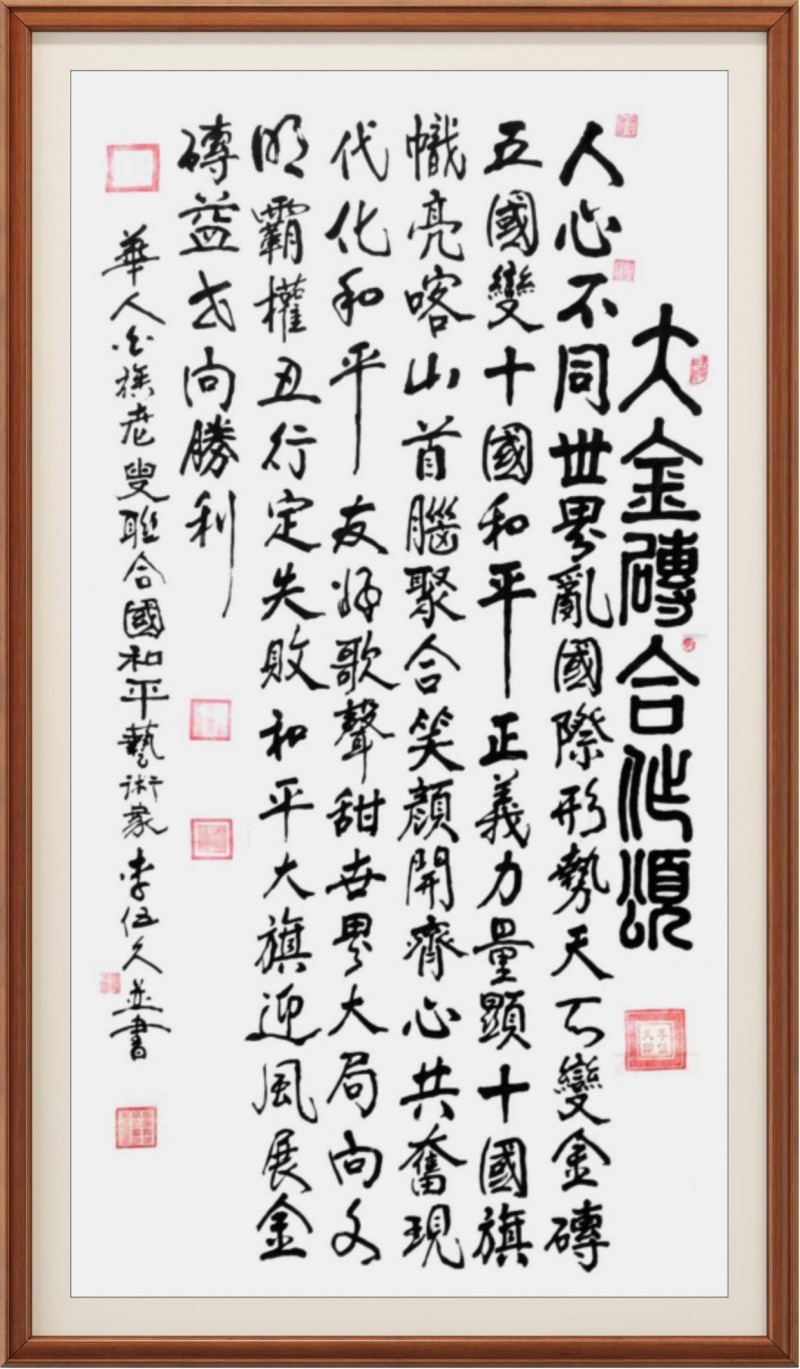 大金磚合作頌
人心不同世界亂國際形勢天下變金磚
五國變十國和平正義力量顯十國旗
幟亮喀山首腦聚合笑顏開齊心共奮現
代化和平友好歌聲甜世界大局向文
明霸權丑行定失敗和平大旗迎風展金
磚益世向勝利
華人老叟聯合國和平藝術家李伍久並書
李伍久印